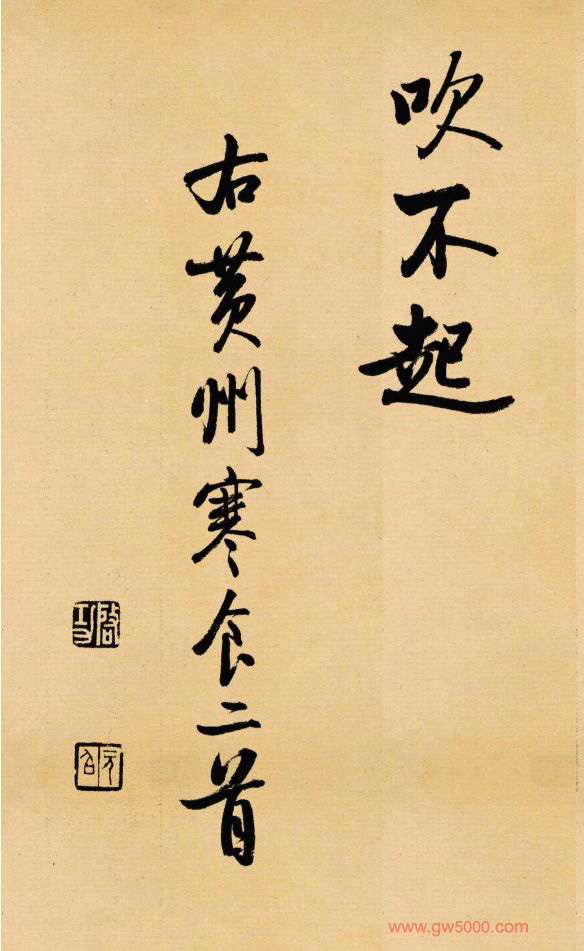 吹不起
右黄州寒食二首
启功
元白
www.gw5000.com